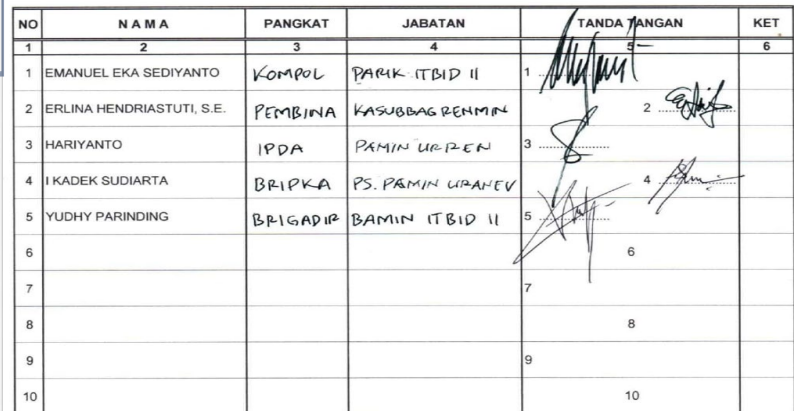 NO NAMA PANGKAT JABATAN TANDA TANGAN KET
1 2 3 4 5 6
1 EMANUEL EKA SEDIYANTO KOMPOL PARIK ITBID II 1 ..........
2 ERLINA HENDRIASTUTI, S.E. PEMBINA KASUBBAGRENMIN 2 ..........
3 HARIYANTO IPDA PAMIN URREN 3 ..........
4 I KADEK SUDIARTA BRIPKA PS. PAMIN URANEV 4 ..........
5 YUDHY PARINDING BRIGADIR BAMIN ITBID II 5 ..........
6 6
7 7
8 8
9 9
10 10